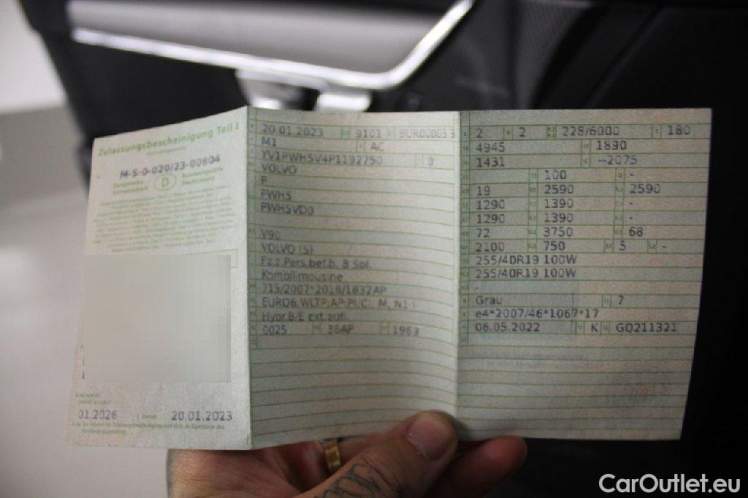 Zulassungsbescheinigung Teil I
M-S 0-020/23-00804
D
01.2026 20.01.2023
20.01.2023 9101
M1 AC
YV1PWH5V4P1192750 9
VOLVO
P
PWH5
PWH5VD0
V90
VOLVO (S)
Fz.z.Pers.bef.b. 8 Spl.
Kombilimousine
715/2007*2018/1832AP
Hybr.B/E ext.aufl.
0025 36AP 1969
2 2 228/6000 180
4945 1890
1431 —2075
100 -
19 2590 2590
1290 1390 -
1290 1390 -
72 3750 68
2100 750 5 -
255/40R19 100W
255/40R19 100W
-
Grau 7
e4*2007/46*1067*17
06.05.2022 K GQ211321
CarOutlet.eu